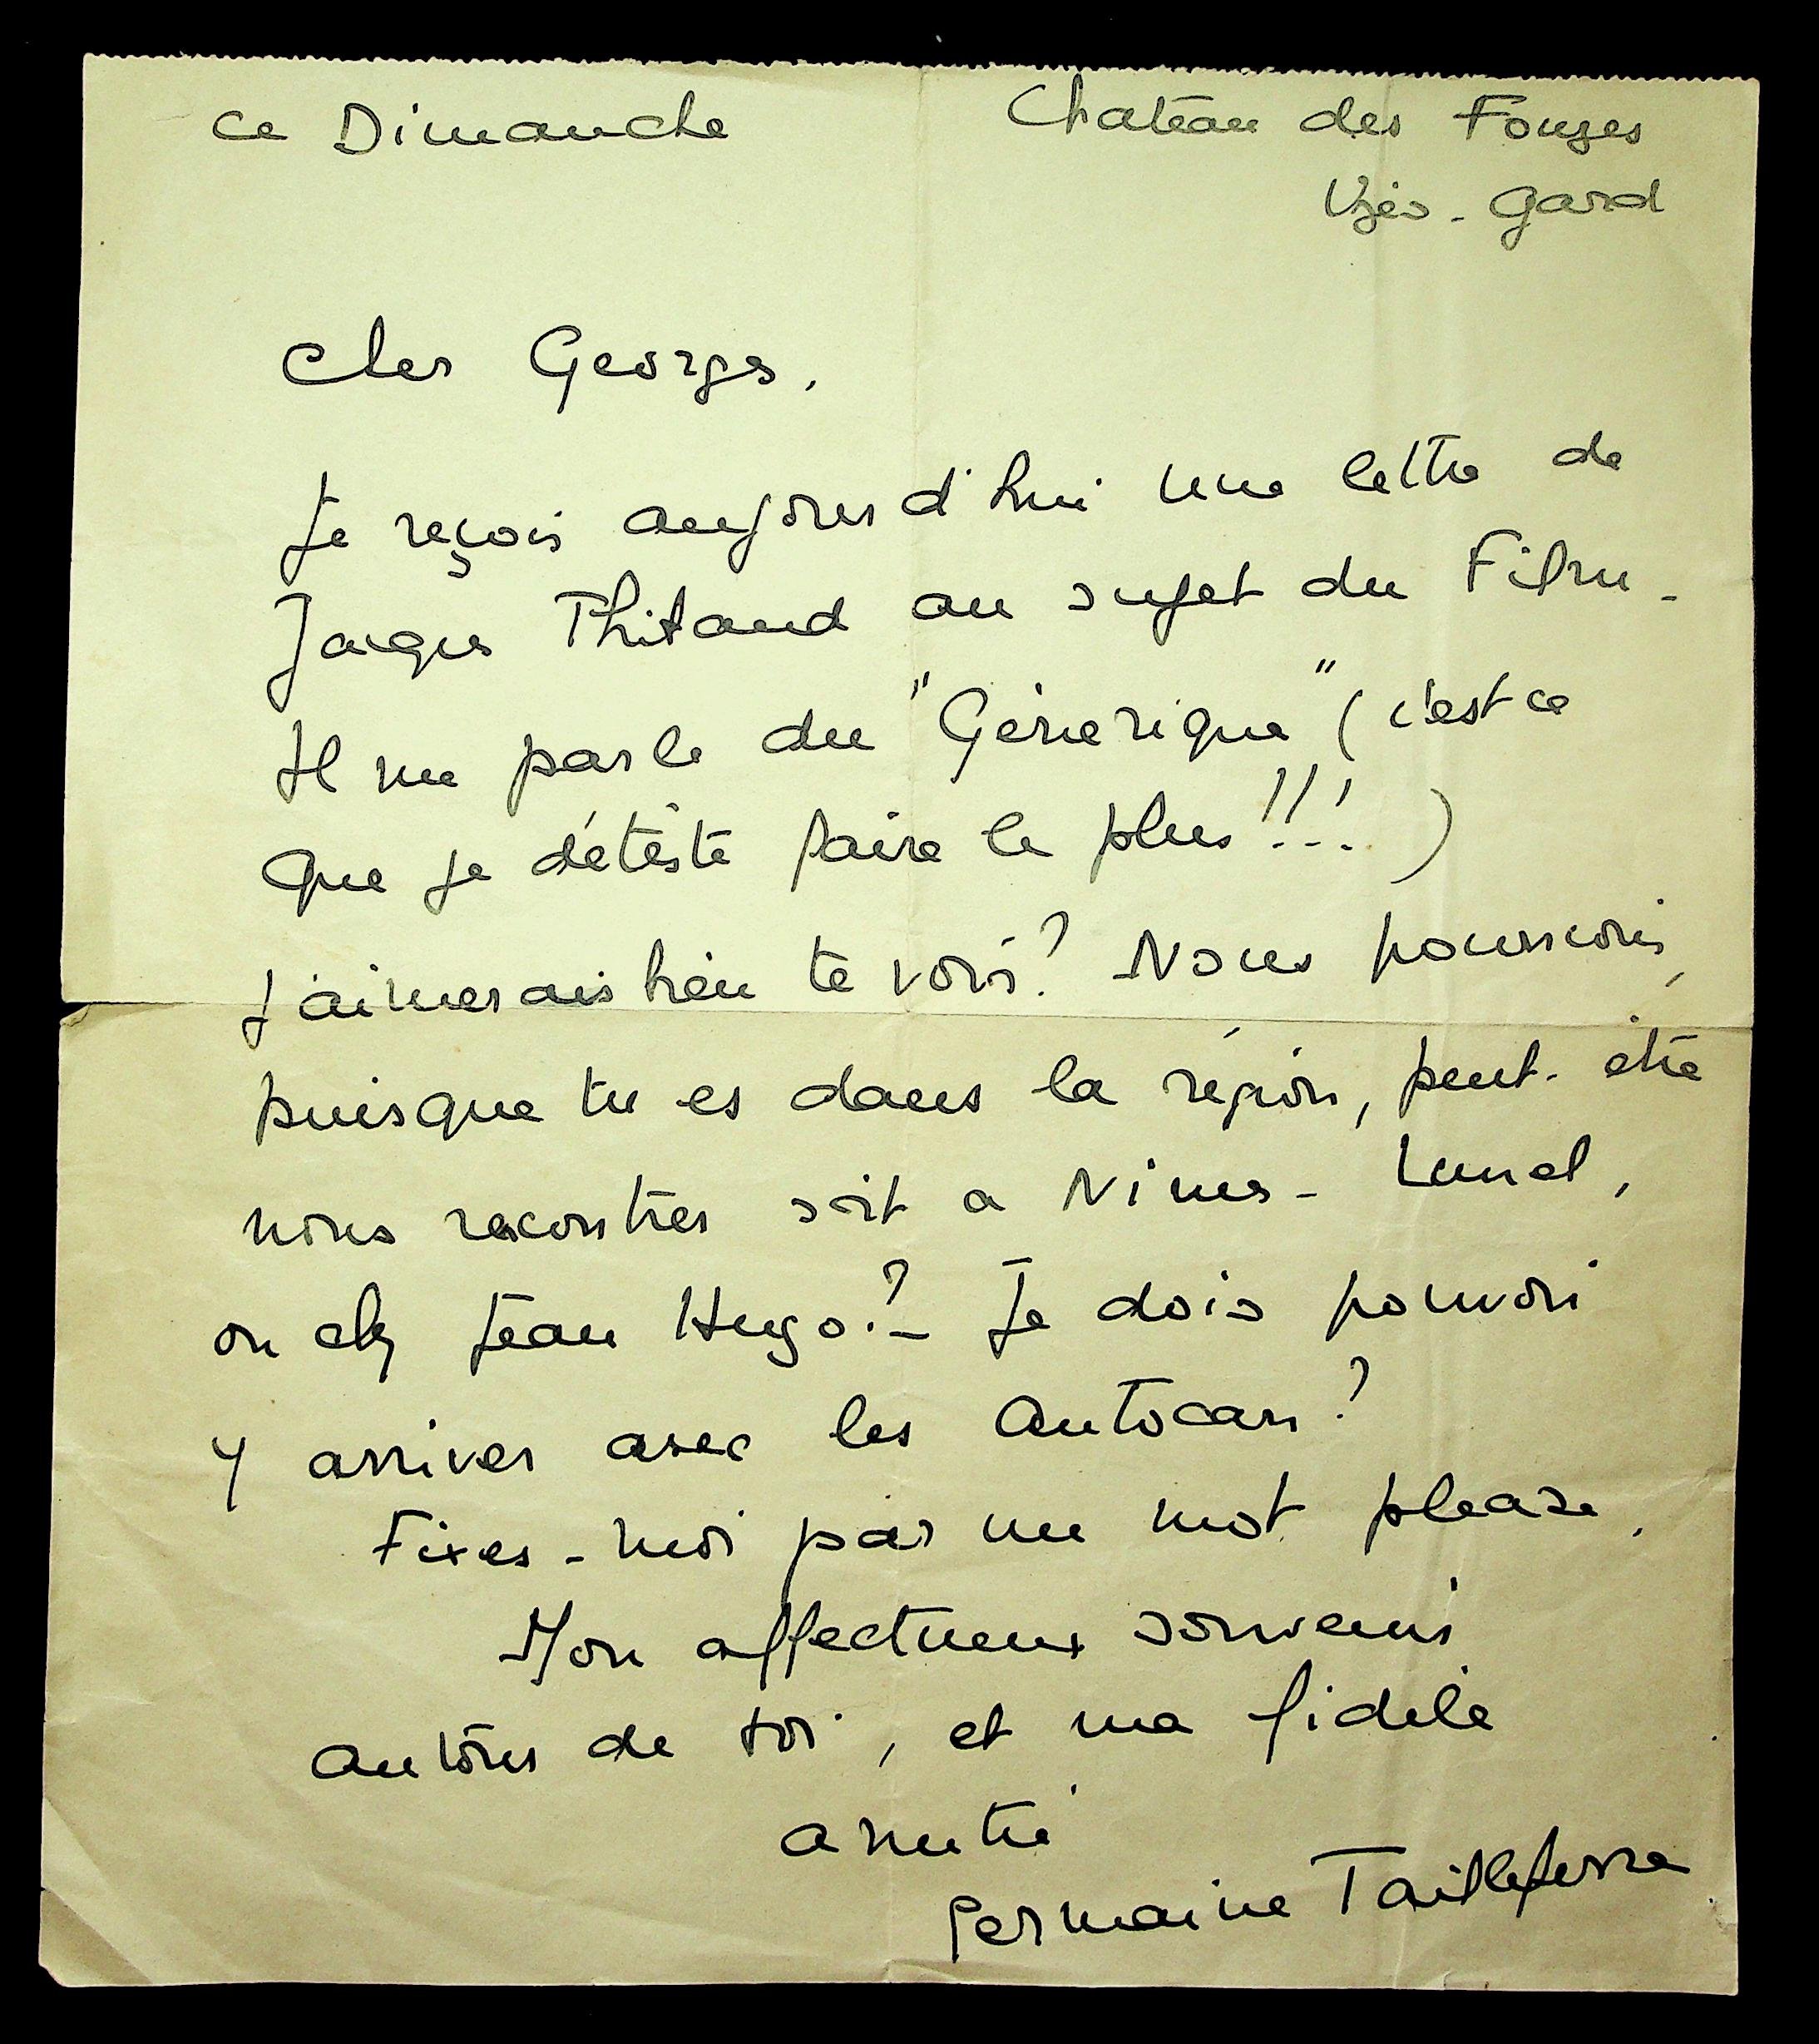 ce Dimanche
Chateau des Fouzes
Uzès - Gard
Cher Georges,
Je reçois aujourd'hui une lettre de
Jacques Thibaud au sujet du Film -
Il me parle du "Générique" (c'est ce
que je déteste faire le plus!!!...)
J'aimerais bien te voir? Nous pourrions,
puisque tu es dans la région, peut-être
nous recontrer soit a Nimes - Lunel,
ou chez Jean Hugo? - Je dois pouvoir
y arriver avec les autocars?
Fixes-moi par un mot please,
Mon affectueux souvenir
autour de toi, et ma fidèle
amitié
Germaine Tailleferre